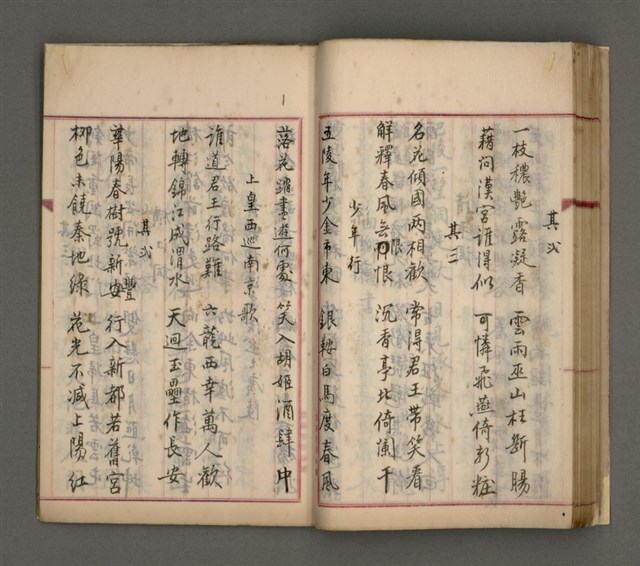 其弍
一枝穠艷露凝香　雲雨巫山枉斷腸
藉问漢宮誰得似　可憐飛燕倚新粧
其三
名花傾國两相歡　常得君王带笑看
解釋春風無限恨　沉香亭北倚闌干
少年行
五陵年少金市東　銀鞍白馬度春風
落花踏盡遊何處　笑入胡姬酒肆中
上皇西巡南京歌
誰道君王行路難　六龍西幸萬人歡
地轉錦江成渭水　天迴玉壘作長安
其弍
華陽春樹號新豐　行入新都若舊宮
柳色未饒秦地綠　花光不減上陽红